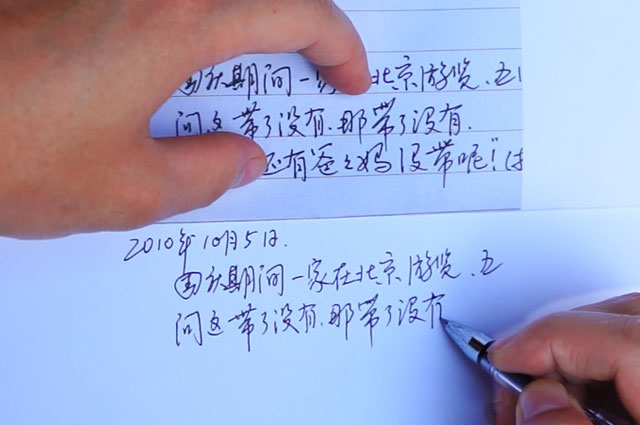 国庆期间一家在北京游览.五
问这带了没有.那带了没有.
还有爸爸妈没带呢!"
2010年10月5日.
国庆期间一家在北京游览.五
问这带了没有.那带了没有